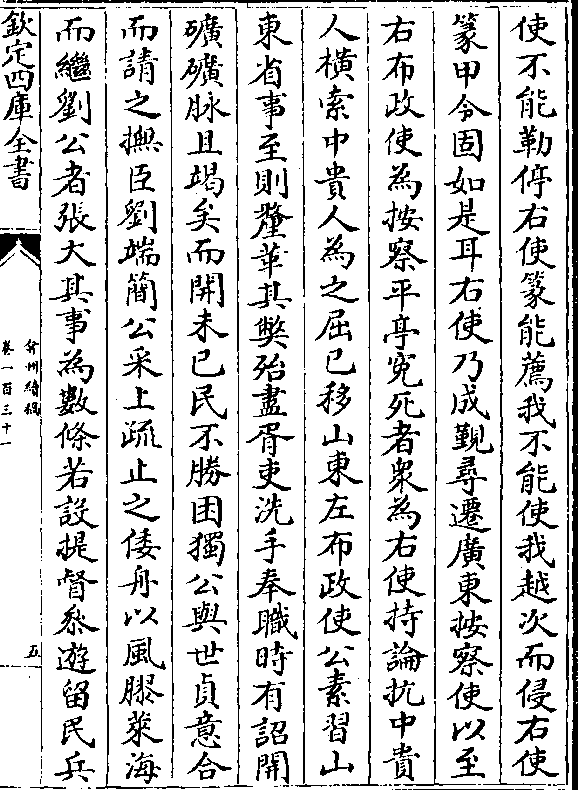 使不能勒停右使篆能薦我不能使我越次而侵右使
篆甲令固如是耳右使乃成覲尋遷廣東按察使以至
右布政使為按察平亭寃死者衆為右使持論抗中貴
人横索中貴人為之屈已移山東左布政使公素習山
東省事至則釐革其弊殆盡胥吏洗手奉職時有詔開
礦礦脉且竭矣而開未已民不勝困獨公與世貞意合
而請之撫臣劉端簡公采上疏止之倭舟以風膠萊海
而繼劉公者張大其事為數條若設提督叅遊留民兵
欽定四庫全書
弇州續稿
卷一百三十一
五